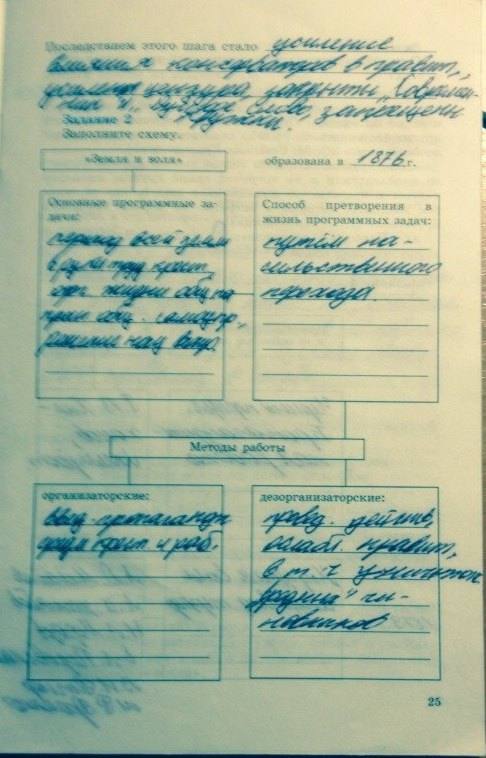 Последствием этого шага стало усиление
влияния консерваторов в правит.,
усилена цензура, закрыты „Современ-
ник" и „Русское слово, запрещены
Задание 2 кружки.
Заполните схему.
«Земля и воля» образована в 1876 г.
Основные программные за-
дачи:
переход всей земли
в руки труд. крест.,
орг. жизни общ. на
прин. общ. самоупр.,
решение нац. вопр.
Способ претворения в
жизнь программных задач:
путём на-
сильственного
перехода.
Методы работы
организаторские:
пропаганды
среди крест. и раб.
дезорганизаторские:
провед. действ,
ослабл. правит,
в т. ч уничтож
„вредных" чи-
новников
25